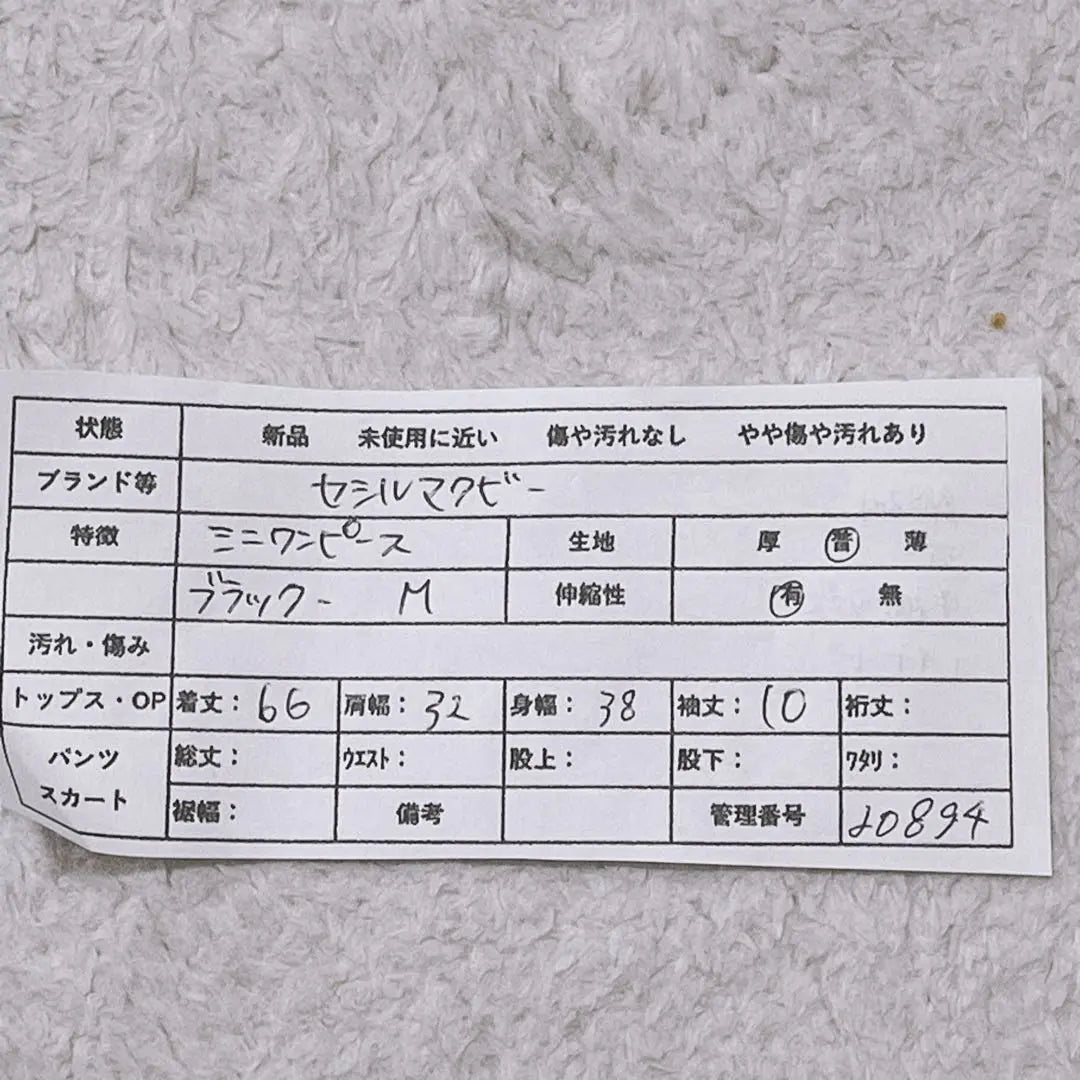 状態 新品 未使用に近い 傷や汚れなし やや傷や汚れあり
ブランド等 セシルマクビー
特徴 ミニワンピース 生地 厚 普 薄
ブラック- M 伸縮性 有 無
汚れ・傷み
トップス・OP 着丈: 66 肩幅: 32 身幅: 38 袖丈: 10 裄丈:
パンツ 総丈: ウエスト: 股上: 股下: ワタリ:
スカート 裾幅: 備考 管理番号 20894